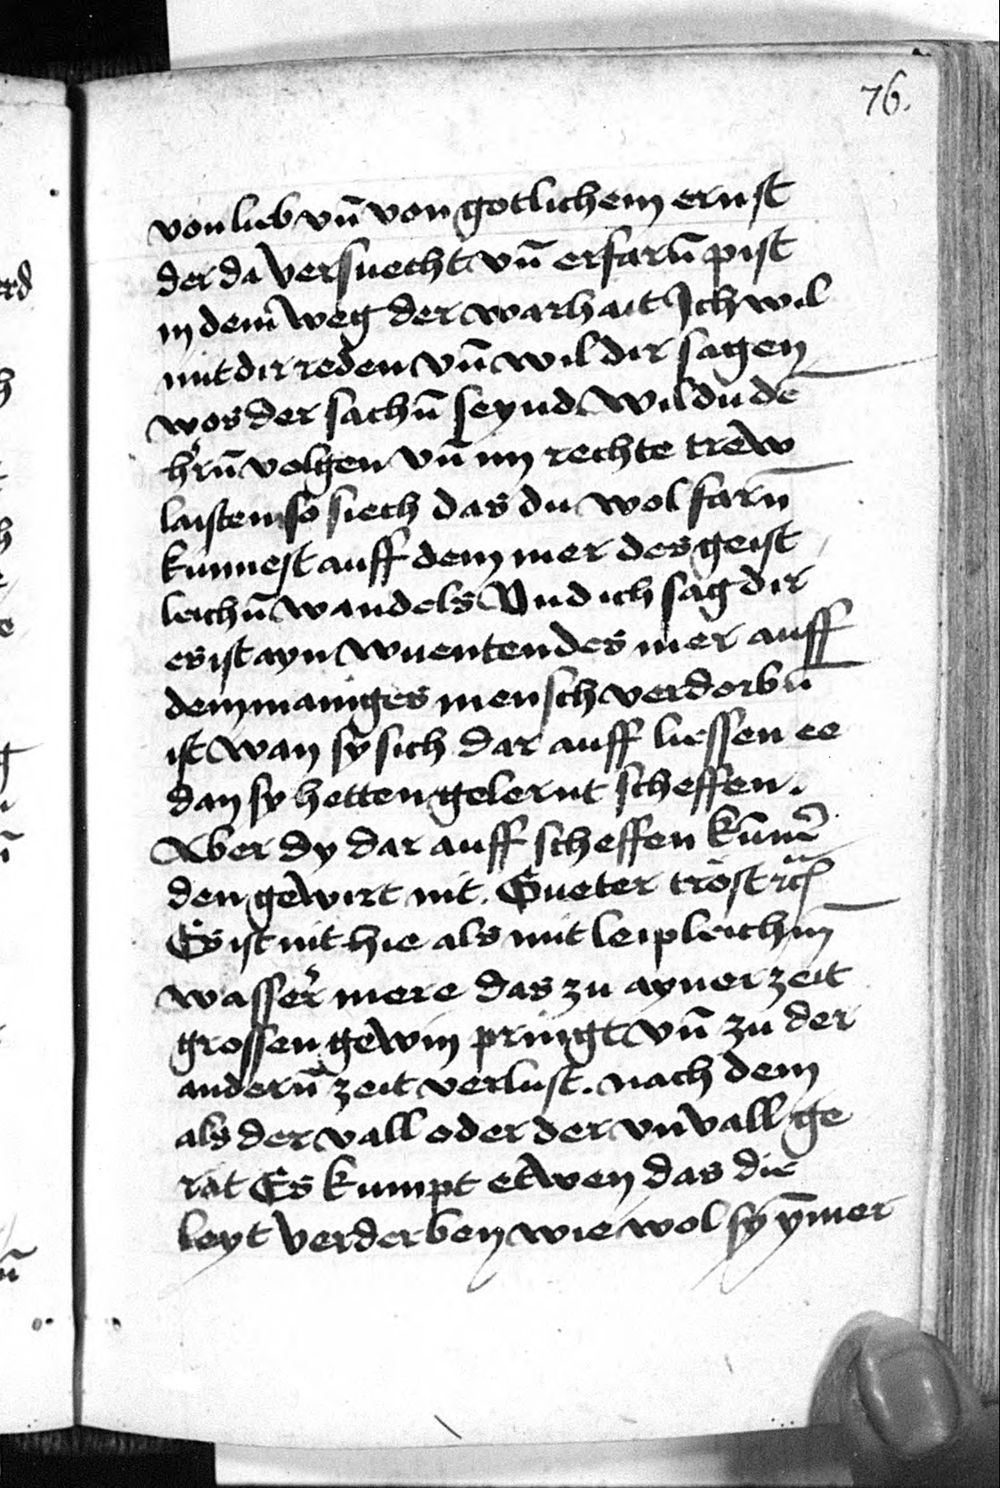 76.
von lieb vn̄ von gotlichem ernst
der da versuecht vn̄ erfarn̄ pist
in dem weg der warhait Ich wil
mit dir reden vn̄ wil dir sagen
wos der sachn̄ seynd wil du dē
hr̄n̄ volgen vn̄ im rechte trew
laisten so siech das du wol farn̄
kunnest auff dem mer des geist
leichn̄ wandels Vnd ich sag dir
es ist ayn wuentendes mer auff
dem maniges mensch verdorbn̄
ist wan sy sich dar auff liessen ee
dan sy hetten gelernt scheffen.
Aber dy dar auff scheffen kūnē
den gewirt nit. Gueter tröst
Es ist nit hie als mit leipleichm̄
wasser mere das zu ayner zeit
grossen gewin pringt vn̄ zu der
andern̄ zeit verlust. nach dem
als der vall oder der vnvall ge
rat Es kumpt etwen das die
leyt verderben wie wol sy ȳmer